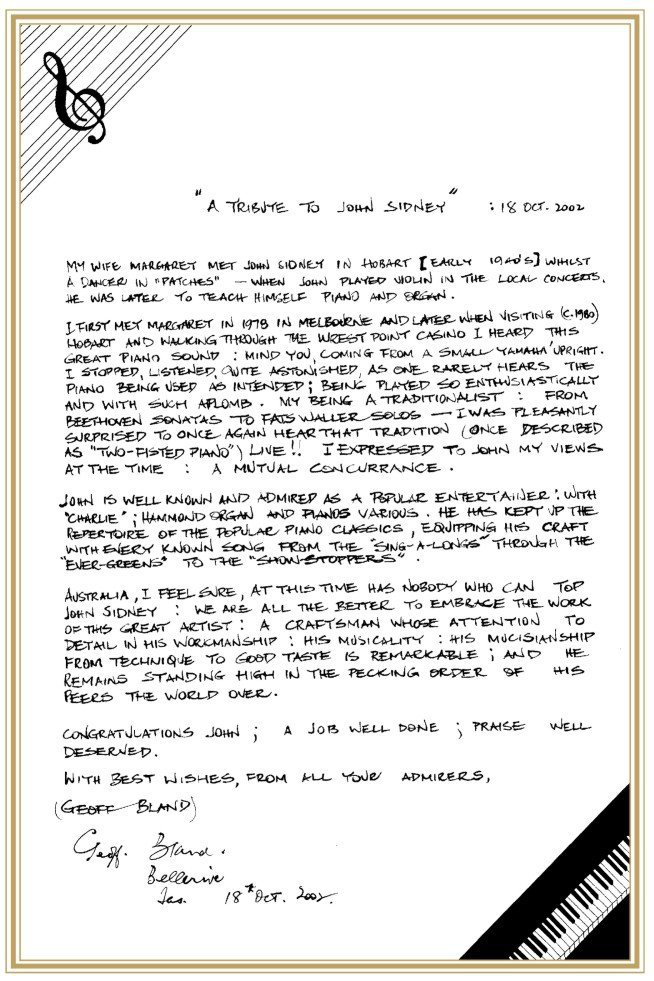 "A TRIBUTE TO JOHN SIDNEY" : 18 OCT. 2002
MY WIFE MARGARET MET JOHN SIDNEY IN HOBART [EARLY 1940'S] WHILST
A DANCER IN "PATCHES" — WHEN JOHN PLAYED VIOLIN IN THE LOCAL CONCERTS.
HE WAS LATER TO TEACH HIMSELF PIANO AND ORGAN.
I FIRST MET MARGARET IN 1978 IN MELBOURNE AND LATER WHEN VISITING (C.1980)
HOBART AND WALKING THROUGH THE WREST POINT CASINO I HEARD THIS
GREAT PIANO SOUND : MIND YOU, COMING FROM A SMALL YAMAHA UPRIGHT.
I STOPPED, LISTENED, QUITE ASTONISHED, AS ONE RARELY HEARS THE
PIANO BEING USED AS INTENDED ; BEING PLAYED SO ENTHUSIASTICALLY
AND WITH SUCH APLOMB. MY BEING A TRADITIONALIST : FROM
BEETHOVEN SONATAS TO FATS WALLER SOLOS — I WAS PLEASANTLY
SURPRISED TO ONCE AGAIN HEAR THAT TRADITION (ONCE DESCRIBED
AS "TWO-FISTED PIANO") LIVE!! I EXPRESSED TO JOHN MY VIEWS
AT THE TIME : A MUTUAL CONCURRANCE.
JOHN IS WELL KNOWN AND ADMIRED AS A POPULAR ENTERTAINER : WITH
"CHARLIE" ; HAMMOND ORGAN AND PIANOS VARIOUS. HE HAS KEPT UP THE
REPERTOIRE OF THE POPULAR PIANO CLASSICS, EQUIPPING HIS CRAFT
WITH EVERY KNOWN SONG FROM THE "SING-A-LONGS" THROUGH THE
"EVER-GREENS" TO THE "SHOW-STOPPERS".
AUSTRALIA, I FEEL SURE, AT THIS TIME HAS NOBODY WHO CAN TOP
JOHN SIDNEY : WE ARE ALL THE BETTER TO EMBRACE THE WORK
OF THIS GREAT ARTIST : A CRAFTSMAN WHOSE ATTENTION TO
DETAIL IN HIS WORKMANSHIP : HIS MUSICALITY : HIS MUCISIANSHIP
FROM TECHNIQUE TO GOOD TASTE IS REMARKABLE ; AND HE
REMAINS STANDING HIGH IN THE PECKING ORDER OF HIS
PEERS THE WORLD OVER.
CONGRATULATIONS JOHN ; A JOB WELL DONE ; PRAISE WELL
DESERVED.
WITH BEST WISHES, FROM ALL YOUR ADMIRERS,
(GEOFF BLAND)
Geoff. Bland.
Bellerive
Tas. 18th OCT. 2002.